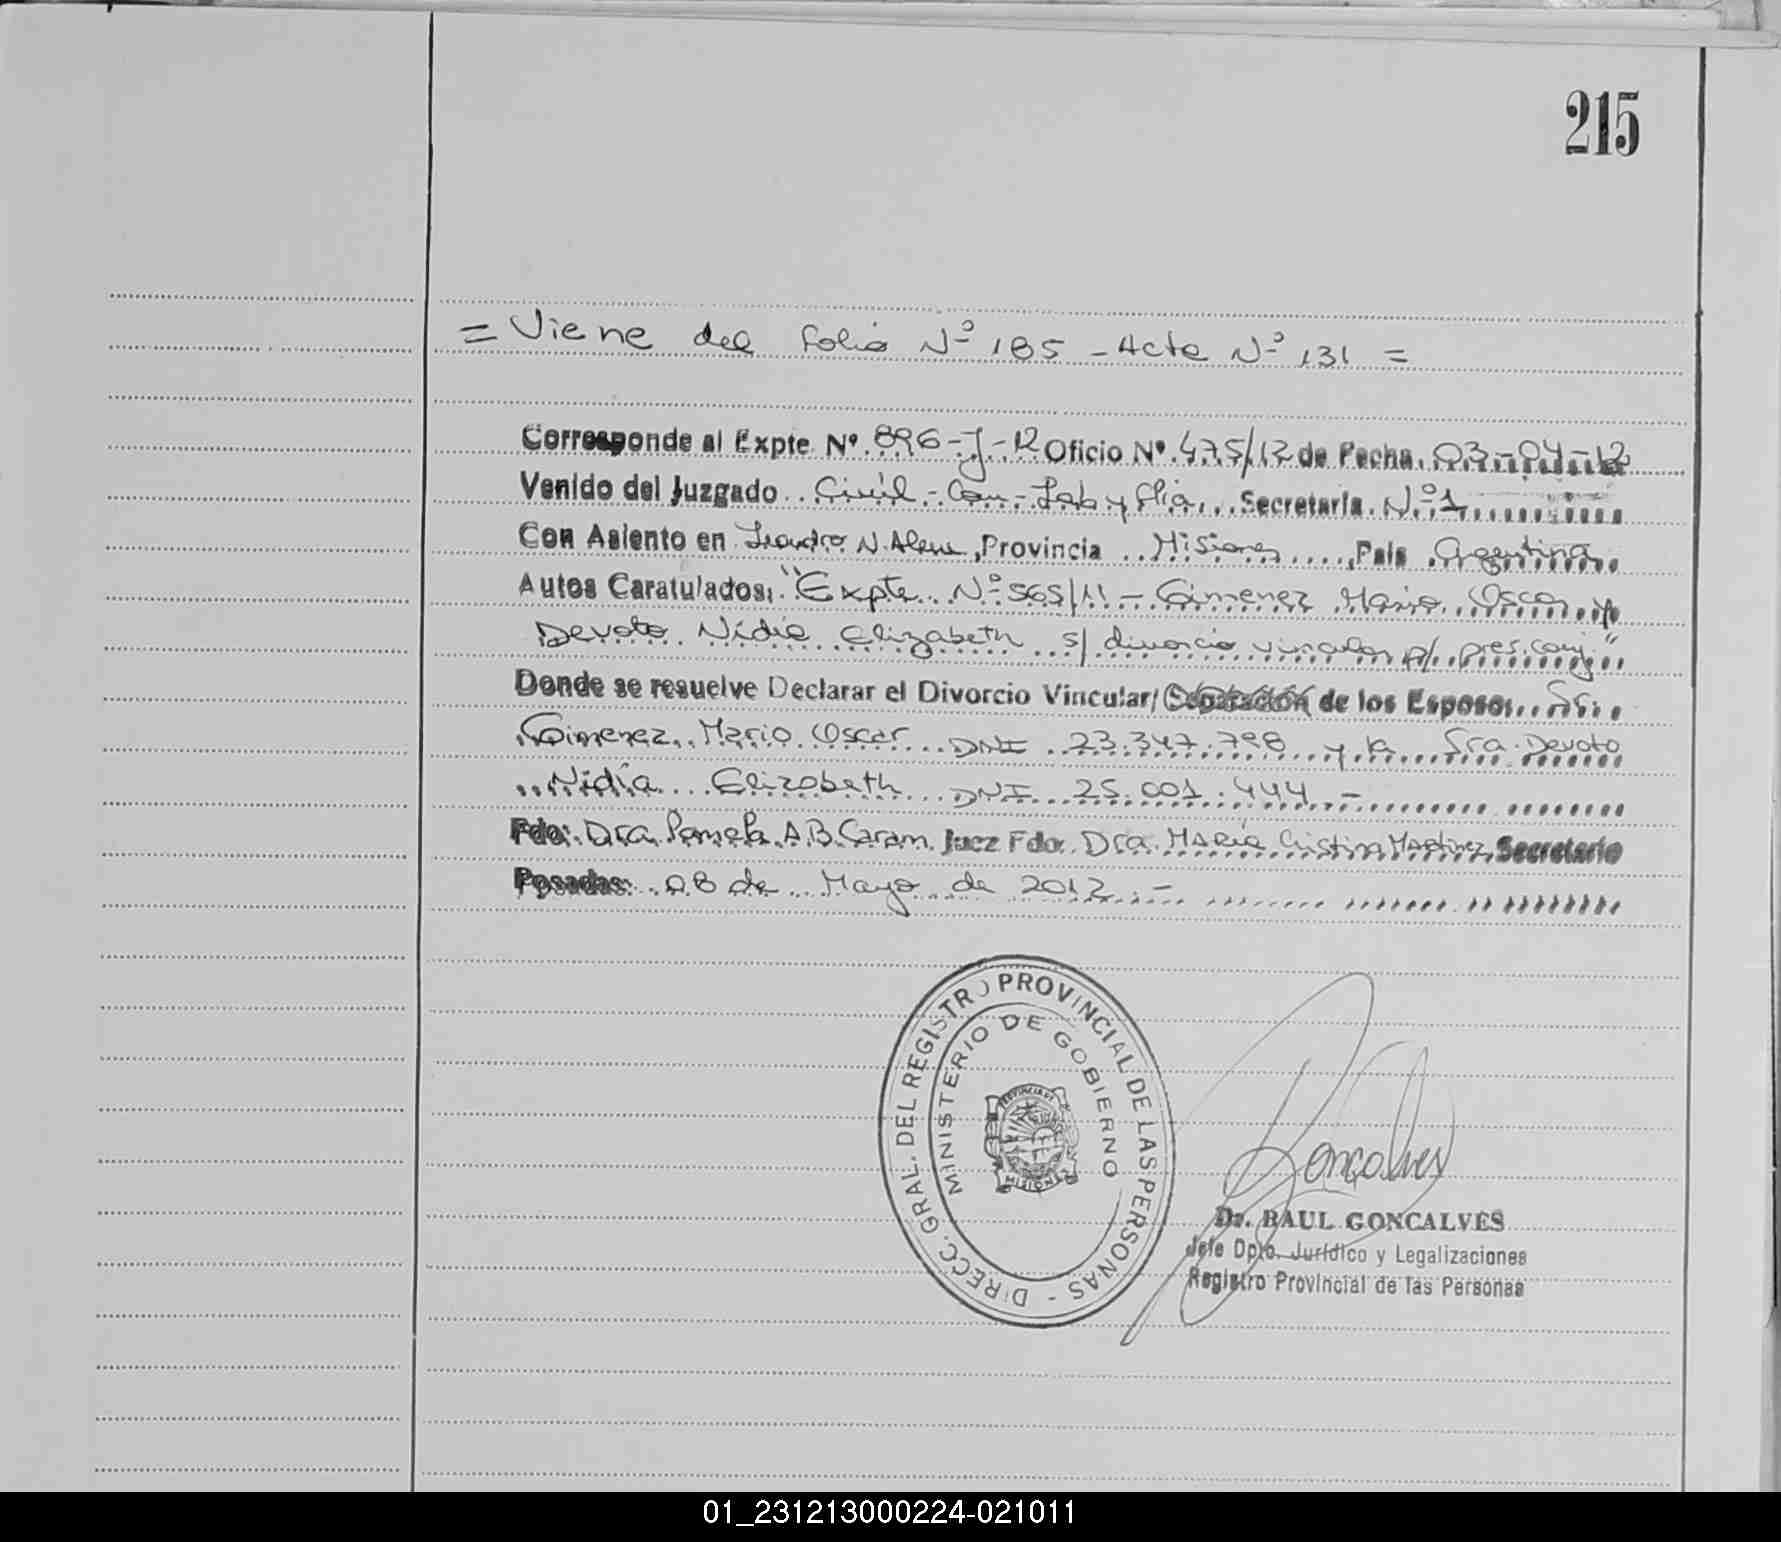 215
= Viene del folio Nº 185 - Acta Nº 131 =
Corresponde al Expte. Nº 896-J-12 Oficio Nº 475/12 de Fecha 03-04-12
Venido del Juzgado Civil - Com - Lab y Flia Secretaría Nº 1
Con Asiento en Leandro N. Alem, Provincia Misiones, País Argentina
Autos Caratulados: "Expte Nº 565/11 - Gimenez Mario Oscar y/o
Devoto Nidia Elizabeth s/ divorcio vincular p/ pres. conj."
Donde se resuelve Declarar el Divorcio Vincular/Separación de los Esposos Sr.
Gimenez Mario Oscar DNI 23.347.798 y la Sra. Devoto
Nidia Elizabeth DNI 25.001.444 -
Fdo: Dra. Pamela A B Caram Juez Fdo: Dra. María Cristina Martinez Secretario
Posadas: 08 de Mayo de 2012 -
DIRECC. GRAL. DEL REGISTRO PROVINCIAL DE LAS PERSONAS -
MINISTERIO DE GOBIERNO
PROVINCIA DE
MISIONES
Goncalves
Dr. RAUL GONCALVES
Jefe Dpto. Jurídico y Legalizaciones
Registro Provincial de las Personas
01_231213000224-021011